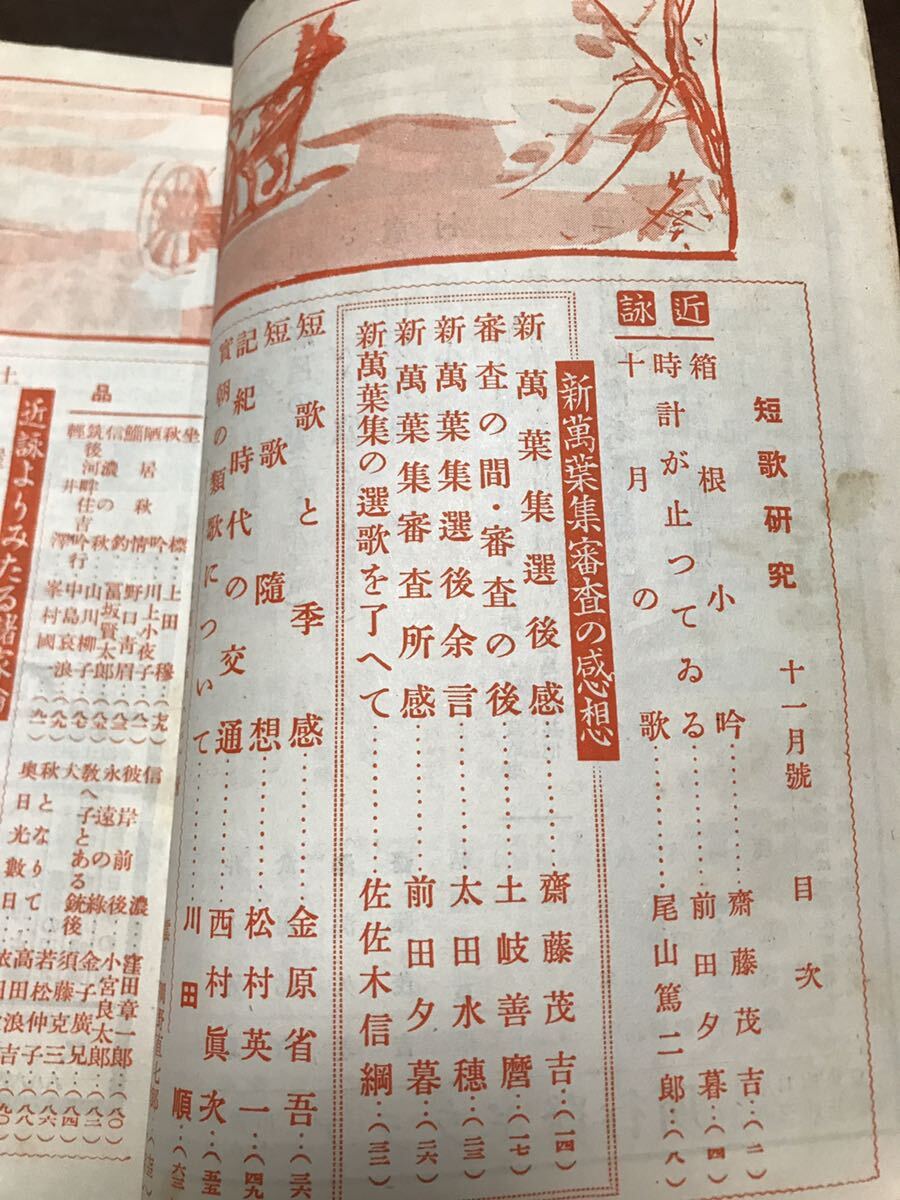 短歌研究 十一月號 目次
近詠
箱根小吟……齋藤茂吉…(二)
時計が止つてゐる……前田夕暮…(四)
十月の歌……尾山篤二郎…(八)
新萬葉集審査の感想
新萬葉集選後感……齋藤茂吉…(一四)
審査の間・審査の後……土岐善麿…(一七)
新萬葉集選後余言……太田水穗…(二三)
新萬葉集審査所感……前田夕暮…(二六)
新萬葉集の選歌を了へて……佐佐木信綱…(三二)
短歌と季感……金原省吾…(三六)
短歌隨想……松村英一…(四九)
記紀時代の交通……西村眞次…(五五)
實朝の類歌について……川田順
品
坐標……上田穆
秋吟……川上小夜子…(八一)
晒居秋情……野口靑眉…(八二)
鯔釣……冨坂賢太郎
信濃の秋……山川柳子
筑後河畔住吉行……中島哀浪
輕井澤……峯村國一
信濃……窪田章一郎…(八〇)
彼岸前後……小宮良太郎
永遠の綠……金子廣兄
敎へ子とある銃後……須藤克三
大……若松
秋となりて
奧日光數日
近詠よりみたる諸家